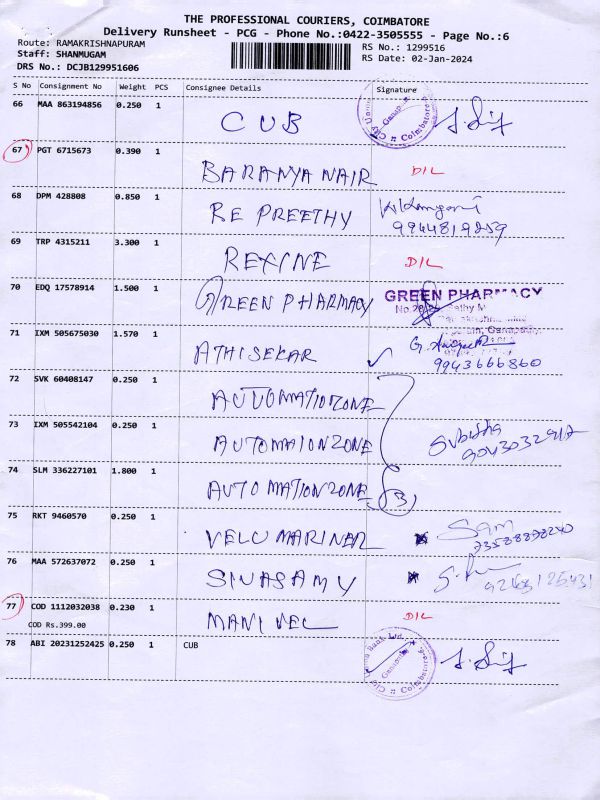 THE PROFESSIONAL COURIERS, COIMBATORE
Delivery Runsheet - PCG - Phone No.:0422-3505555 - Page No.:6
Route: RAMAKRISHNAPURAM
RS No.: 1299516
Staff: SHANMUGAM
RS Date: 02-Jan-2024
DRS No.: DCJB129951606
S No Consignment No Weight PCS Consignee Details Signature
66 MAA 863194856 0.250 1
CUB
67 PGT 6715673 0.390 1
BARANYA NAIR D/L
68 DPM 428808 0.850 1
RE PREETHY
9944819259
69 TRP 4315211 3.300 1
REXINE D/L
70 EDQ 17578914 1.500 1
GREEN PHARMACY
GREEN PHARMACY
71 IXM 505675030 1.570 1
ATHISEKAR
9943666860
72 SVK 60408147 0.250 1
AUTOMATIONZONE
73 IXM 505542104 0.250 1
AUTOMAIONZONE
Subitha
74 SLM 336227101 1.800 1
AUTOMATIONZONE 3
75 RKT 9460570 0.250 1
VELU MARINER
Sam
76 MAA 572637072 0.250 1
SIVASAMY
77 COD 1112032038 0.230 1
COD Rs.399.00
MANIVEL D/L
78 ABI 20231252425 0.250 1 CUB
City Union Bank Ltd.
Coimbatore